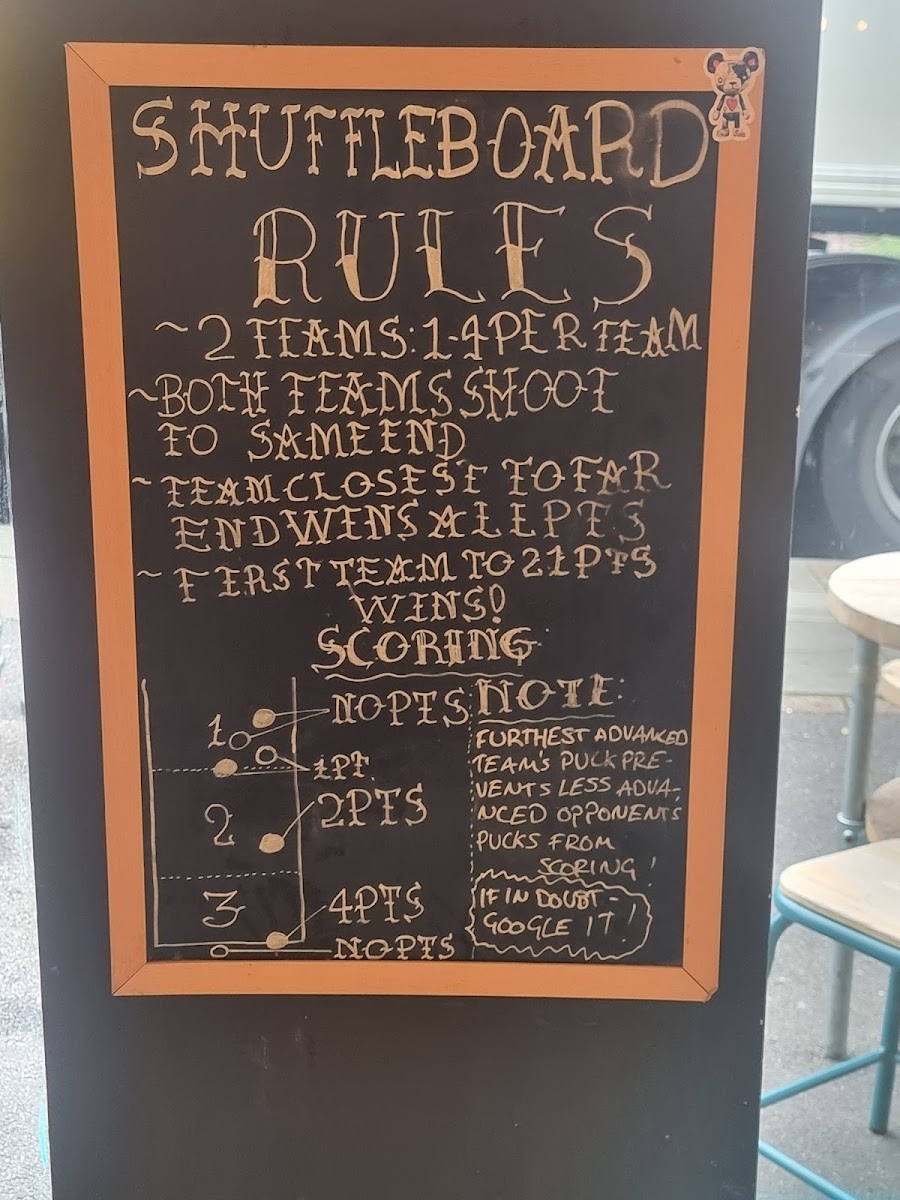 SHUFFLEBOARD
RULES
~2 TEAMS: 1-4 PER TEAM
~BOTH TEAMS SHOOT
TO SAME END
~TEAM CLOSEST TO FAR
END WINS ALL PTS
~FIRST TEAM TO 21 PTS
WINS!
SCORING
1
NO PTS
1 PT.
2
2 PTS
3
4 PTS
NO PTS
NOTE:
FURTHEST ADVANCED
TEAM'S PUCK PRE-
VENTS LESS ADVA-
NCED OPPONENTS
PUCKS FROM
SCORING!
IF IN DOUBT -
GOOGLE IT!